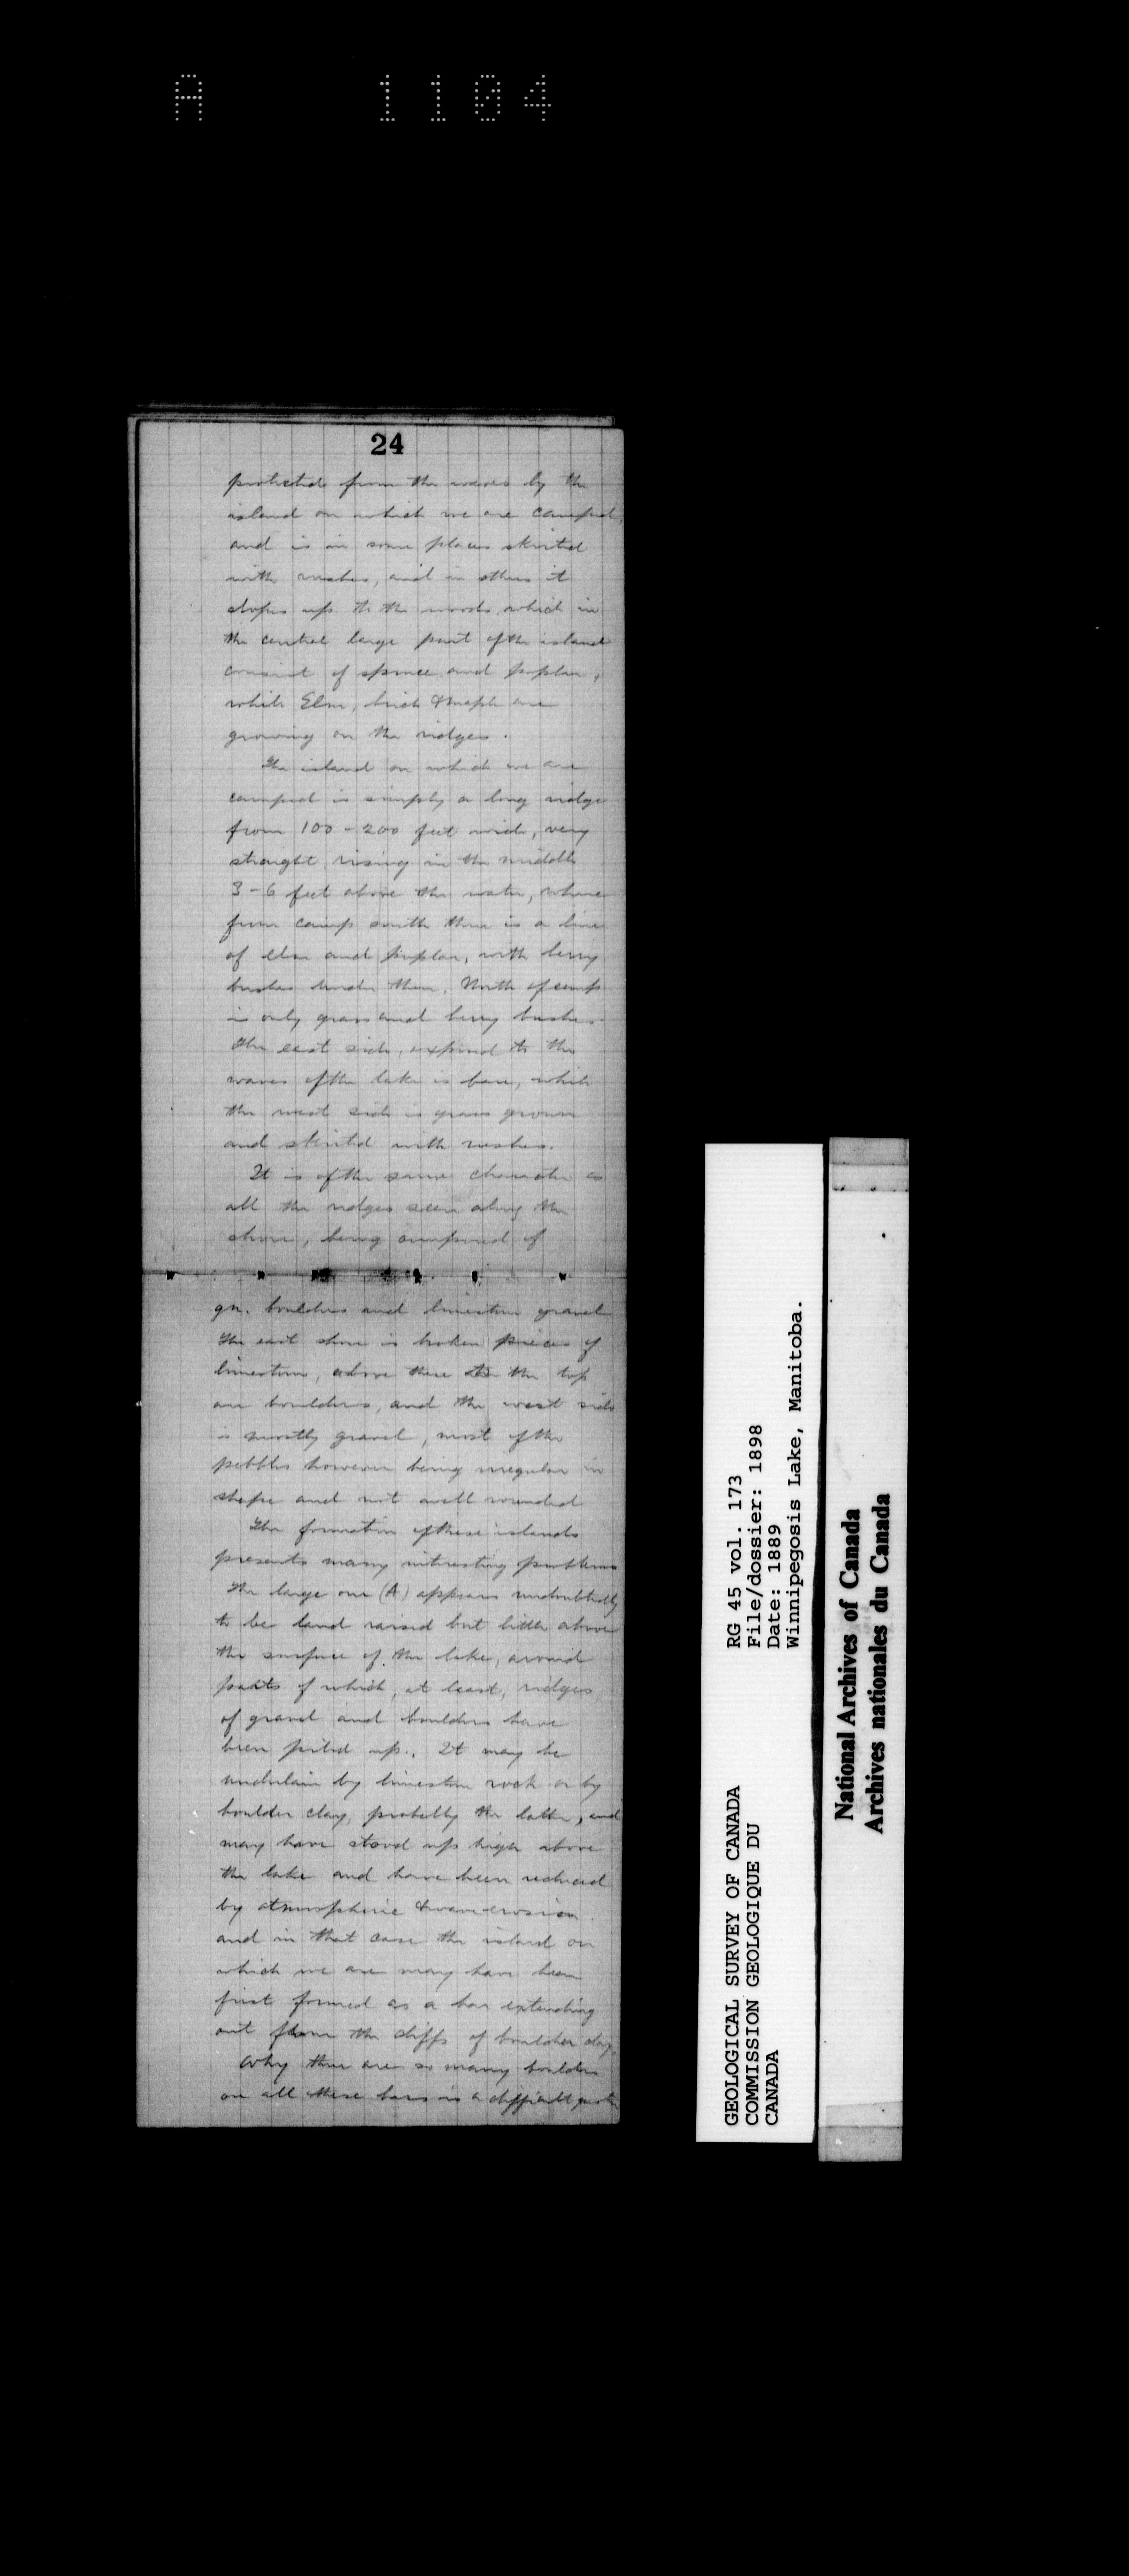 A 1104
24
protected from the waves by the
island on which we are camped,
and is in some places skirted
with rushes, and in others it
slopes up to the woods which in
the central large part of the island
consist of spruce and poplar,
while Elm, birch & maple are
growing on the ridges.
The island on which we are
camped is simply a long ridge
from 100-200 feet wide, very
straight, rising in the middle
3-6 feet above the water, where
from camp south there is a line
of elm and poplar, with berry
bushes under them. North of camp
is only grass and berry bushes.
The east side, exposed to the
waves of the lake is bare, while
the west side is grass grown
and skirted with rushes.
It is of the same character as
all the ridges seen along the
shore, being composed of
gn. boulders and limestone gravel
The east shore is broken pieces of
limestone, above these to the top
are boulders, and the west side
is mostly gravel, most of the
pebbles however being irregular in
shape and not well rounded
The formation of these islands
presents many interesting problems
The large one (A) appears undoubtedly
to be land raised but little above
the surface of the lake, around
parts of which, at least, ridges
of gravel and boulders have
been piled up. It may be
underlain by limestone rock or by
boulder clay, probably the latter, and
may have stood up high above
the lake and have been reduced
by atmospheric & wave erosion.
and in that case the island on
which we are may have been
first formed as a bar extending
out from the cliffs of boulder clay.
Why there are so many boulders
on all these bars is a difficult
GEOLOGICAL SURVEY OF CANADA
COMMISSION GEOLOGIQUE DU
CANADA
RG 45 vol. 173
File/dossier: 1898
Date: 1889
Winnipegosis Lake, Manitoba.
National Archives of Canada
Archives nationales du Canada